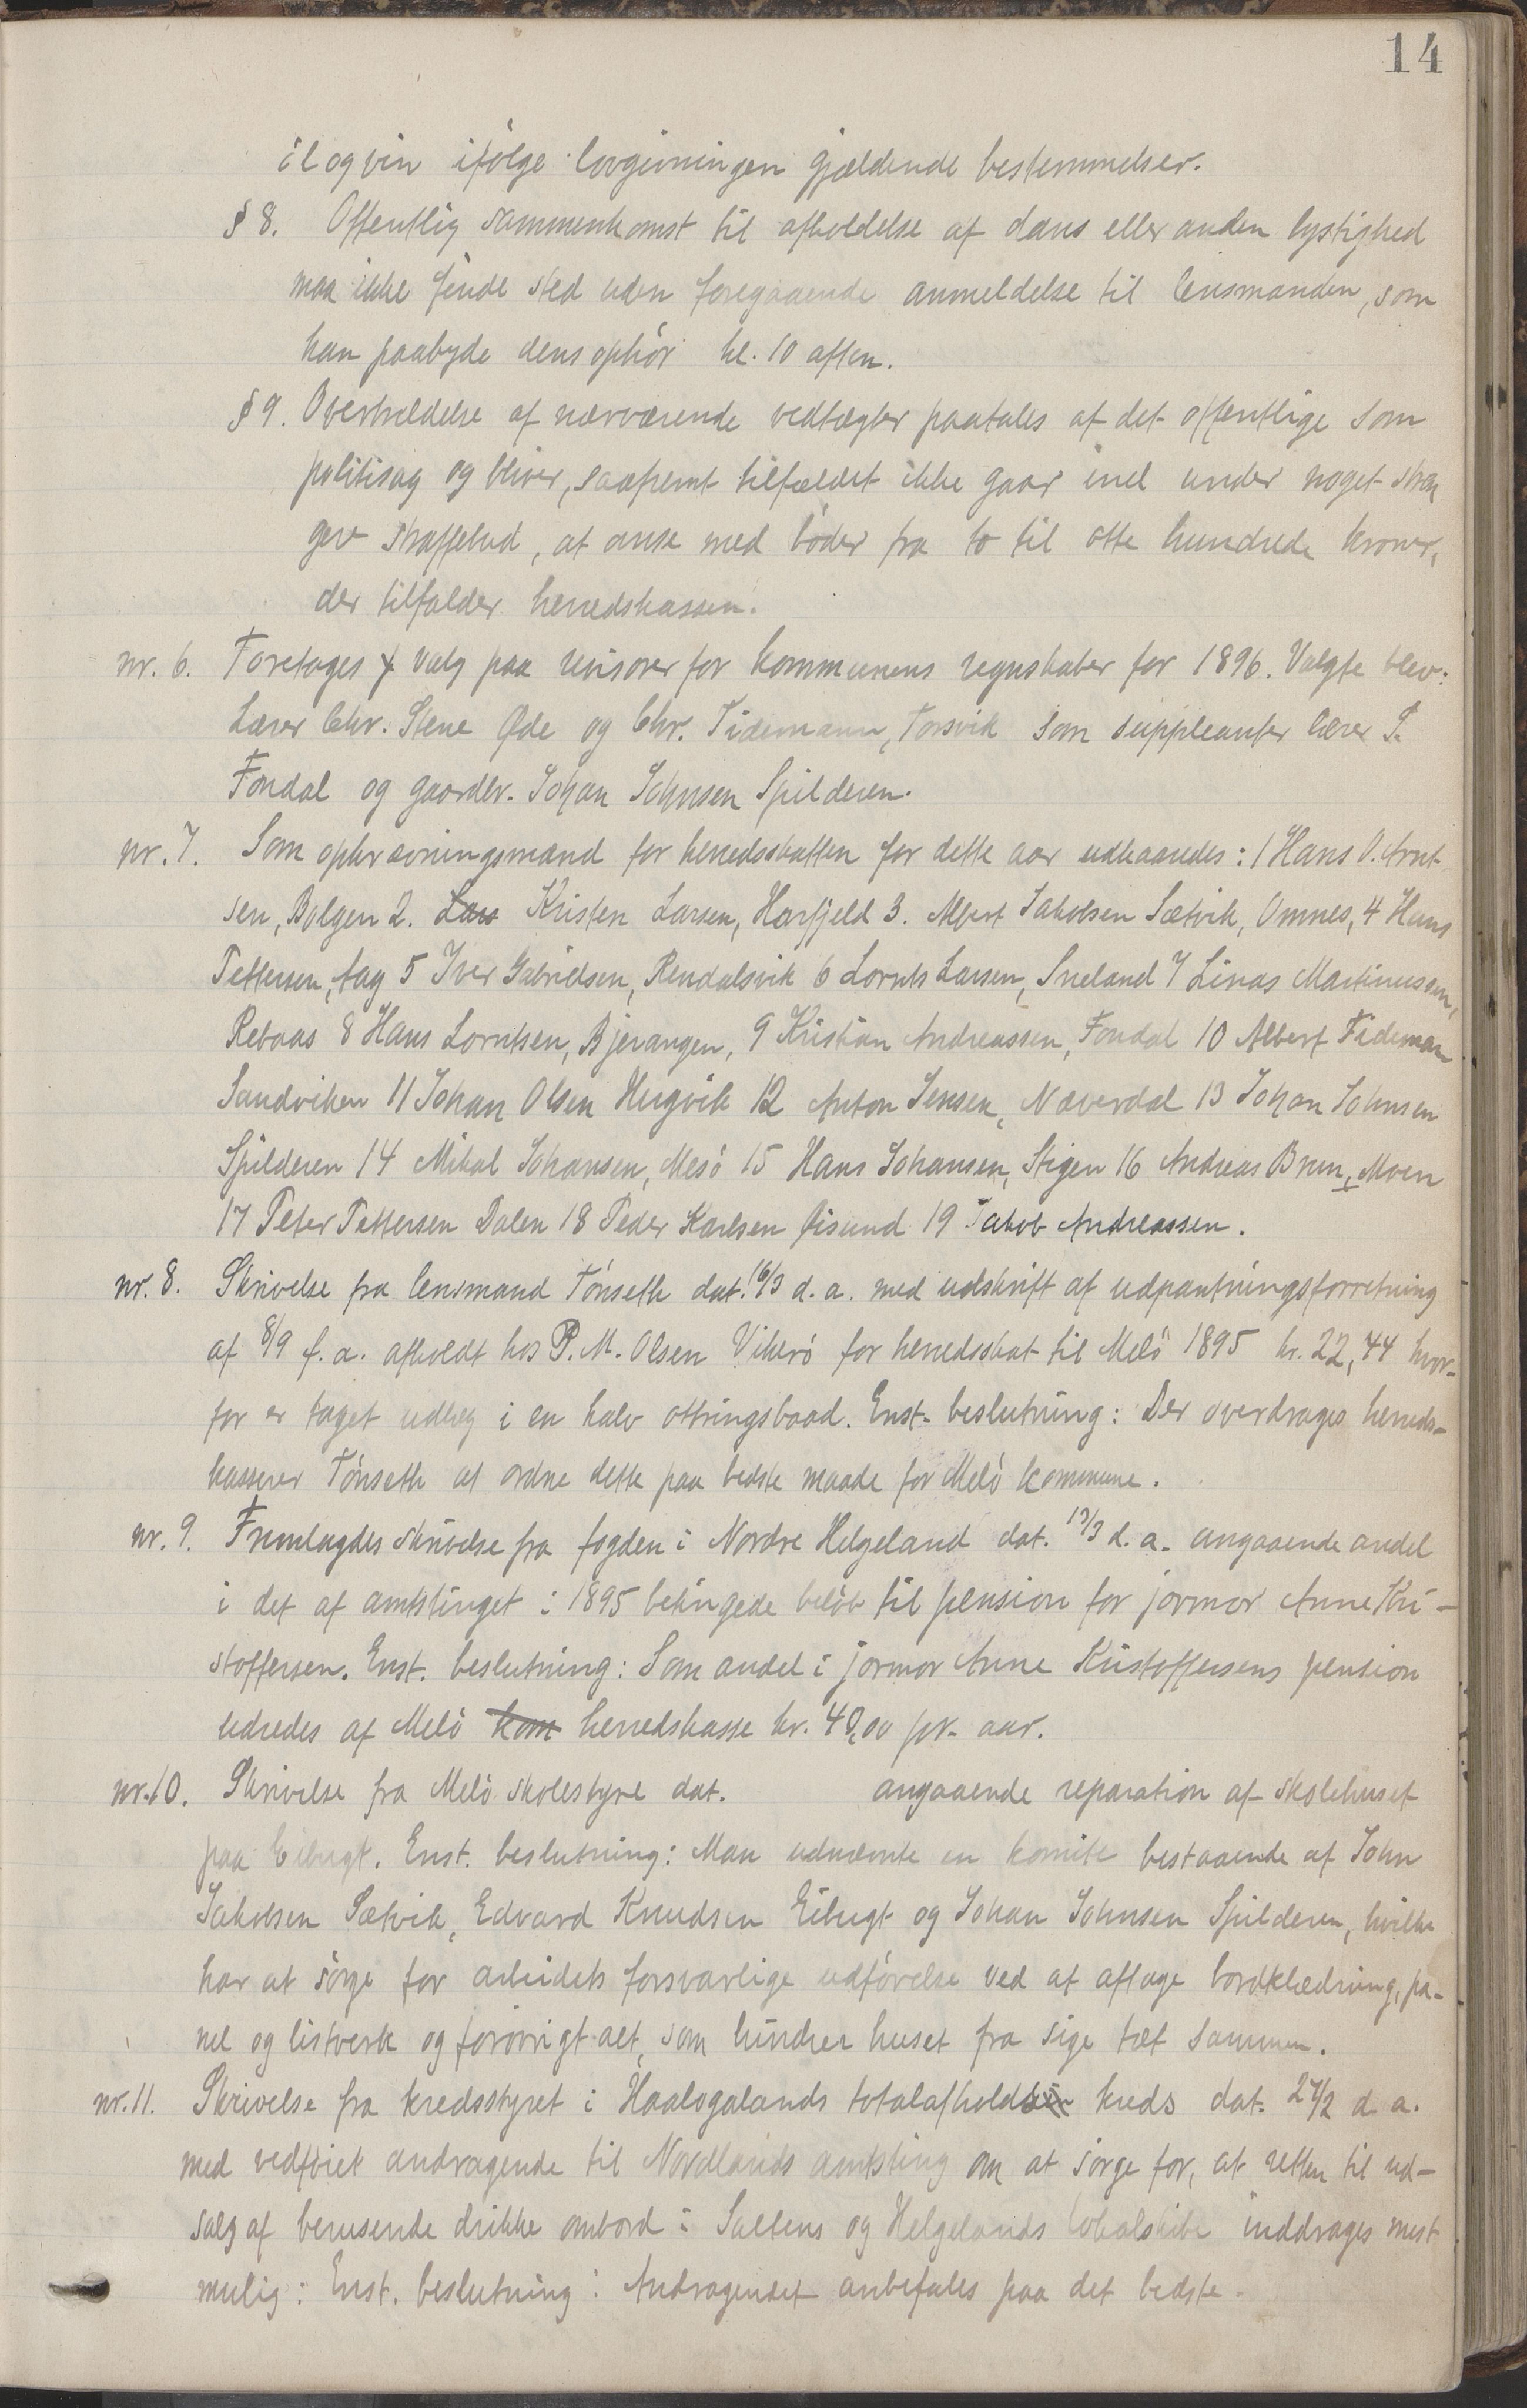 14
öl og vin ifölge lovgivningen gjældende bestemmelser.
§ 8. Offentlig sammenkomst til afholdelse af dans eller anden lystighed
maa ikke finde sted uden foregaaende anmeldelse til lensmanden, som
kan paabyde dens ophör kl. 10 aften.
§ 9. Overtrædelse af nærværende vedtægter paatales af det offentlige som
politisag og bliver, saafremt tilfældet ikke gaar ind under noget stræn
gere straffebud, at anse med böder fra to til otte hundrede kroner,
der tilfalder herredskassen.
nr. 6. Foretages valg paa revisorer for kommunens regnskaber for 1896. Valgte blev:
Lærer Chr. Stene Øde og Chr. Tidemann, Torsvik som suppleanter lærer P.
Fondal og gaardbr. Johan Johnsen Spilderen.
nr. 7. Som opkrævningsmænd for herredsskatten for dette aar udkaaredes: 1 Hans O. Arnt
sen, Bolgen 2. Lars Kristen Larsen, Harfjeld 3. Albert Jakobsen Sætvik, Omnes, 4 Hans
Pettersen, Aag 5 Iver Gabrielsen, Rendalsvik 6 Lornts Larsen, Sneland 7 Linas Martinussen,
Rebaas 8 Hans Lorntsen, Bjerangen, 9 Kristian Andreassen, Fondal 10 Albert Tideman
Sandviken 11 Johan Olsen Hugvik 12 Anton Jensen, Næverdal 13 Johan Johnsen
Spilderen 14 Mikal Johansen, Mesö 15 Hans Johansen, Stigen 16 Andreas Brun, Moen
17 Peter Pettersen Dalen 18 Peder Karlsen Øisund 19 Jakob Andreassen.
nr. 8. Skrivelse fra lensmand Tönseth dat. 16/3 d. a. med udskrift af udpantningsforretning
af 8/9 f. a. afholdt hos P. M. Olsen Vikerö for herredsskat til Melö 1895 kr. 22,44 hvor-
for er taget udlæg i en halv ottringsbaad. Enst. beslutning: Der overdrages herreds-
kasserer Tönseth at ordne dette paa bedste maade for Melö kommune.
nr. 9. Fremlagdes skrivelse fra fogden i Nordre Helgeland dat. 17/3 d. a. angaaende andel
i det af amtstinget i 1895 betingede belöb til pension for jormor Anne Kri-
stoffersen. Enst. beslutning: Som andel i jormor Anne Kristoffersens pension
udredes af Melö kom herredskasse kr. 40,00 pr. aar.
nr. 10. Skrivelse fra Melö skolestyre dat. angaaende reparation af skolehuset
paa Eibugt. Enst. beslutning: Man udnævnte en komite bestaaende af John
Jakobsen Sætvik, Edvard Knudsen Eibugt og Johan Johnsen Spilderen, hvilke
har at sörge for arbeidets forsvarlige udförelse ved at aftage bordklædning, pa-
nel og listverk og forövrigt alt, som hindrer huset fra sige tæt sammen.
nr. 11. Skrivelse fra kredsstyret i Haalogalands totalafholds kreds dat. 27/2 d. a.
med vedföiet andragende til Nordlands amtsting om at sörge for, at retten til ud-
salg af berusende drikke ombord i Saltens og Helgelands lokalskibe inddrages mest
mulig: Enst. beslutning: Andragendet anbefales paa det bedste.